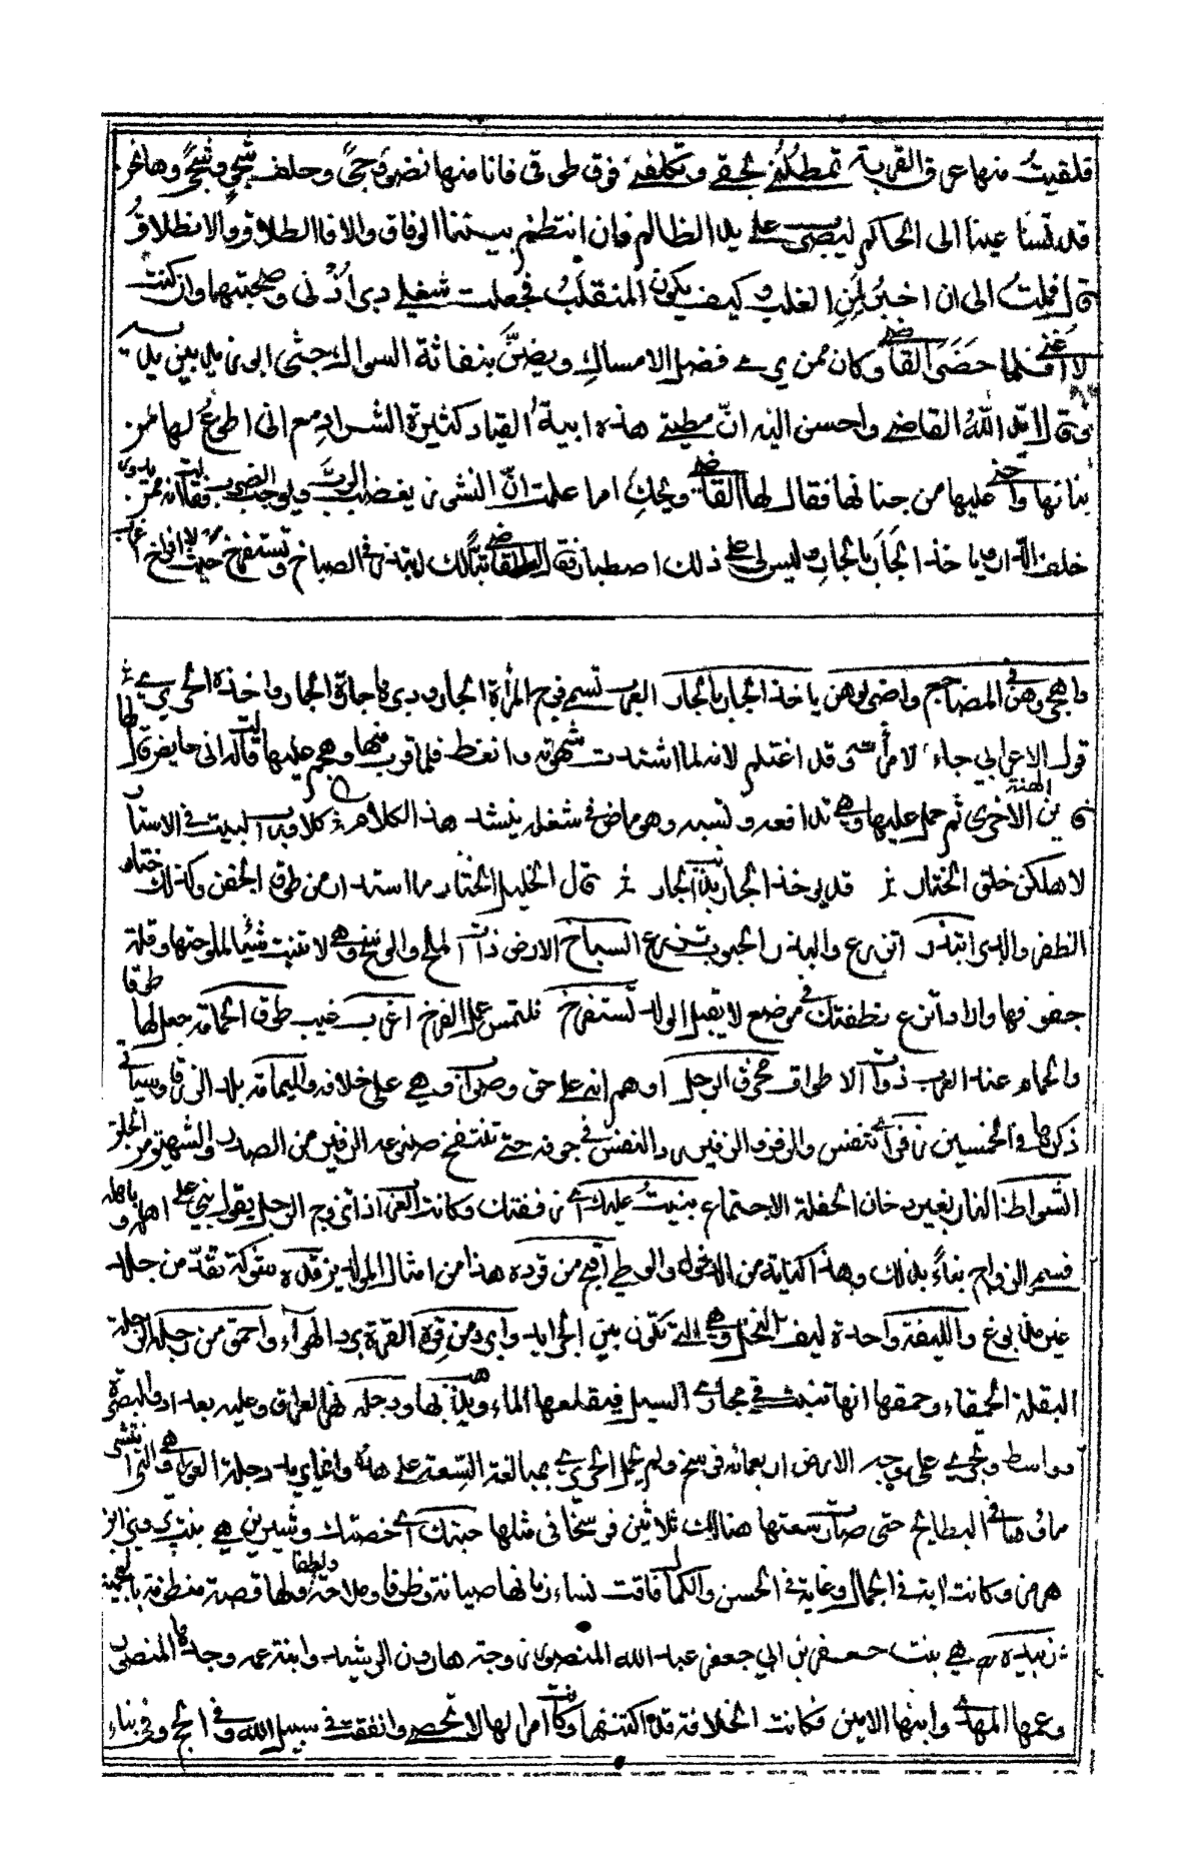 فلقيت منها عرق القربة تمطلني بحقي وتكلفني فوق طوقي فانا منها نضو وجى وحلف شجو وشجى وها نحن
قد تسنا عينا الى الحاكم ليضرب على يد الظالم فان انتظم بيننا الوفاق والا فالطلاق والانطلاق
قال فملت الى ان اخبر لمن الغلب وكيف يكون المنقلب فجعلت شغلي دبر اذني وصحبتهما وان كنت
لا اغني فلما حضر القاضي وكان ممن يرى فضل الامساك ويضن بنفاثة السواك جثى ابو زيد بين يديه
وقال ايد الله القاضي واحسن اليه ان مطيتي هذه ابية القياد كثيرة الشراد مع اني اطوع لها من
بنانها واحنى عليها من جنانها فقال لها القاضي ويحك اما علمت ان النشوز يغضب الرب ويوجب الضرب فقالت انه ممن يدور
خلف الدار وياخذ الجار بالجار وليس لي على ذلك اصطبار فقال القاضي تبا لك اتبذر في السباخ وتستفرخ حيث لا افراخ اعزب
واهجروهن في المضاجع واضربوهن ياخذ الجار بالجار العرب تسمي فرج المرأة الجار ودبرها جارة الجار واخذه الحريري من
قول الاعرابي جاء لامرأته وقد اغتلم لانه لما اشتدت شهوته وانعظ فلما قرب منها وهجم عليها قالت اني حايض قال لها
اين الهنة الاخرى ثم حمل عليها وهي تدافعه وتسبه وهو ماض في شغله ينشد هذا الكلام كلا ورب البيت ذي الاستار
لاهتكن حلق الحتار قد يوخذ الجار بذنب الجار قال الخليل الحتار ما استدار من طرف الجفن وكذلك حتار
الظفر والدبر اتبذر اتزرع والبذر الحبوب تزرع السباخ الارض ذات الملح والنز وهي لا تنبت شيئا لملوحتها وقلة
جفوفها واراد اتزرع نطفتك في موضع لا يقبل الولد تستفرخ تلتمس عمل الفرخ اعزب غيب طوق الحمامة جعل لها طوقا
والحمام عند العرب ذوات الاطواق مخرق الرجل اوهم انه على حق وصواب وهي على خلافه واليمامة بلد الزرقا وسياتي
ذكرها في الخمسين زفرات تنفس والزفر والزفير رد النفس في جوفه حتى تنتفخ ضلوعه الزفير من الصدر والشهيق من الحلق
الشواظ النار بغير دخان الحفلة الاجتماع بنيت عليك اي زففتك وكانت العرب اذا تزوج الرجل يقول بنى على اهله وباهله
فسمي الزواج بناءً بذلك وهذا كناية من الدخول والوطي اقبح من قرده هذا من امثال المولدين قده سوكة تقد من جلد
غير مدبوغ والليفة واحدة ليف النخل وهي التي تكون بين الجرايد وابرد من قرة القرة برد الهواء واحمق من رجله الرجلة
البقلة الحمقاء وحمقها انها تنبت في مجاري السيل فيقلعها الماء ويذهب بها ودجلة نهر العراق وعليه بغداد والبصرة
وواسط ويجري على وجه الارض اربعمائة فرسخ ولم يحمل الحريري بمبالغة السعة على هذه وانما يريد دجلة العوراء وهي التي انتشر
ماؤها في البطايح حتى صارت سعتها هنالك ثلاثين فرسخا في مثلها حبتك اي خصتك وشيرين هي بنت پرويز ابن
هرمز وكانت اية في الجمال وغاية في الحسن والكمال فاقت نساء زمانها صيانة وظرفا وملاحة ولطفا ولها قصة منظومة بالعجمية
زبيدة هي بنت جعفر بن ابي جعفر عبد الله المنصور زوجة هارون الرشيد وابنة عمه وجدها المنصور
وعمها المهدي وابنها الامين فكانت الخلافة قد اكتنفتها وكانت امرالها لا تحصى وانفقت في سبيل الله وفي الحج وفي بناء